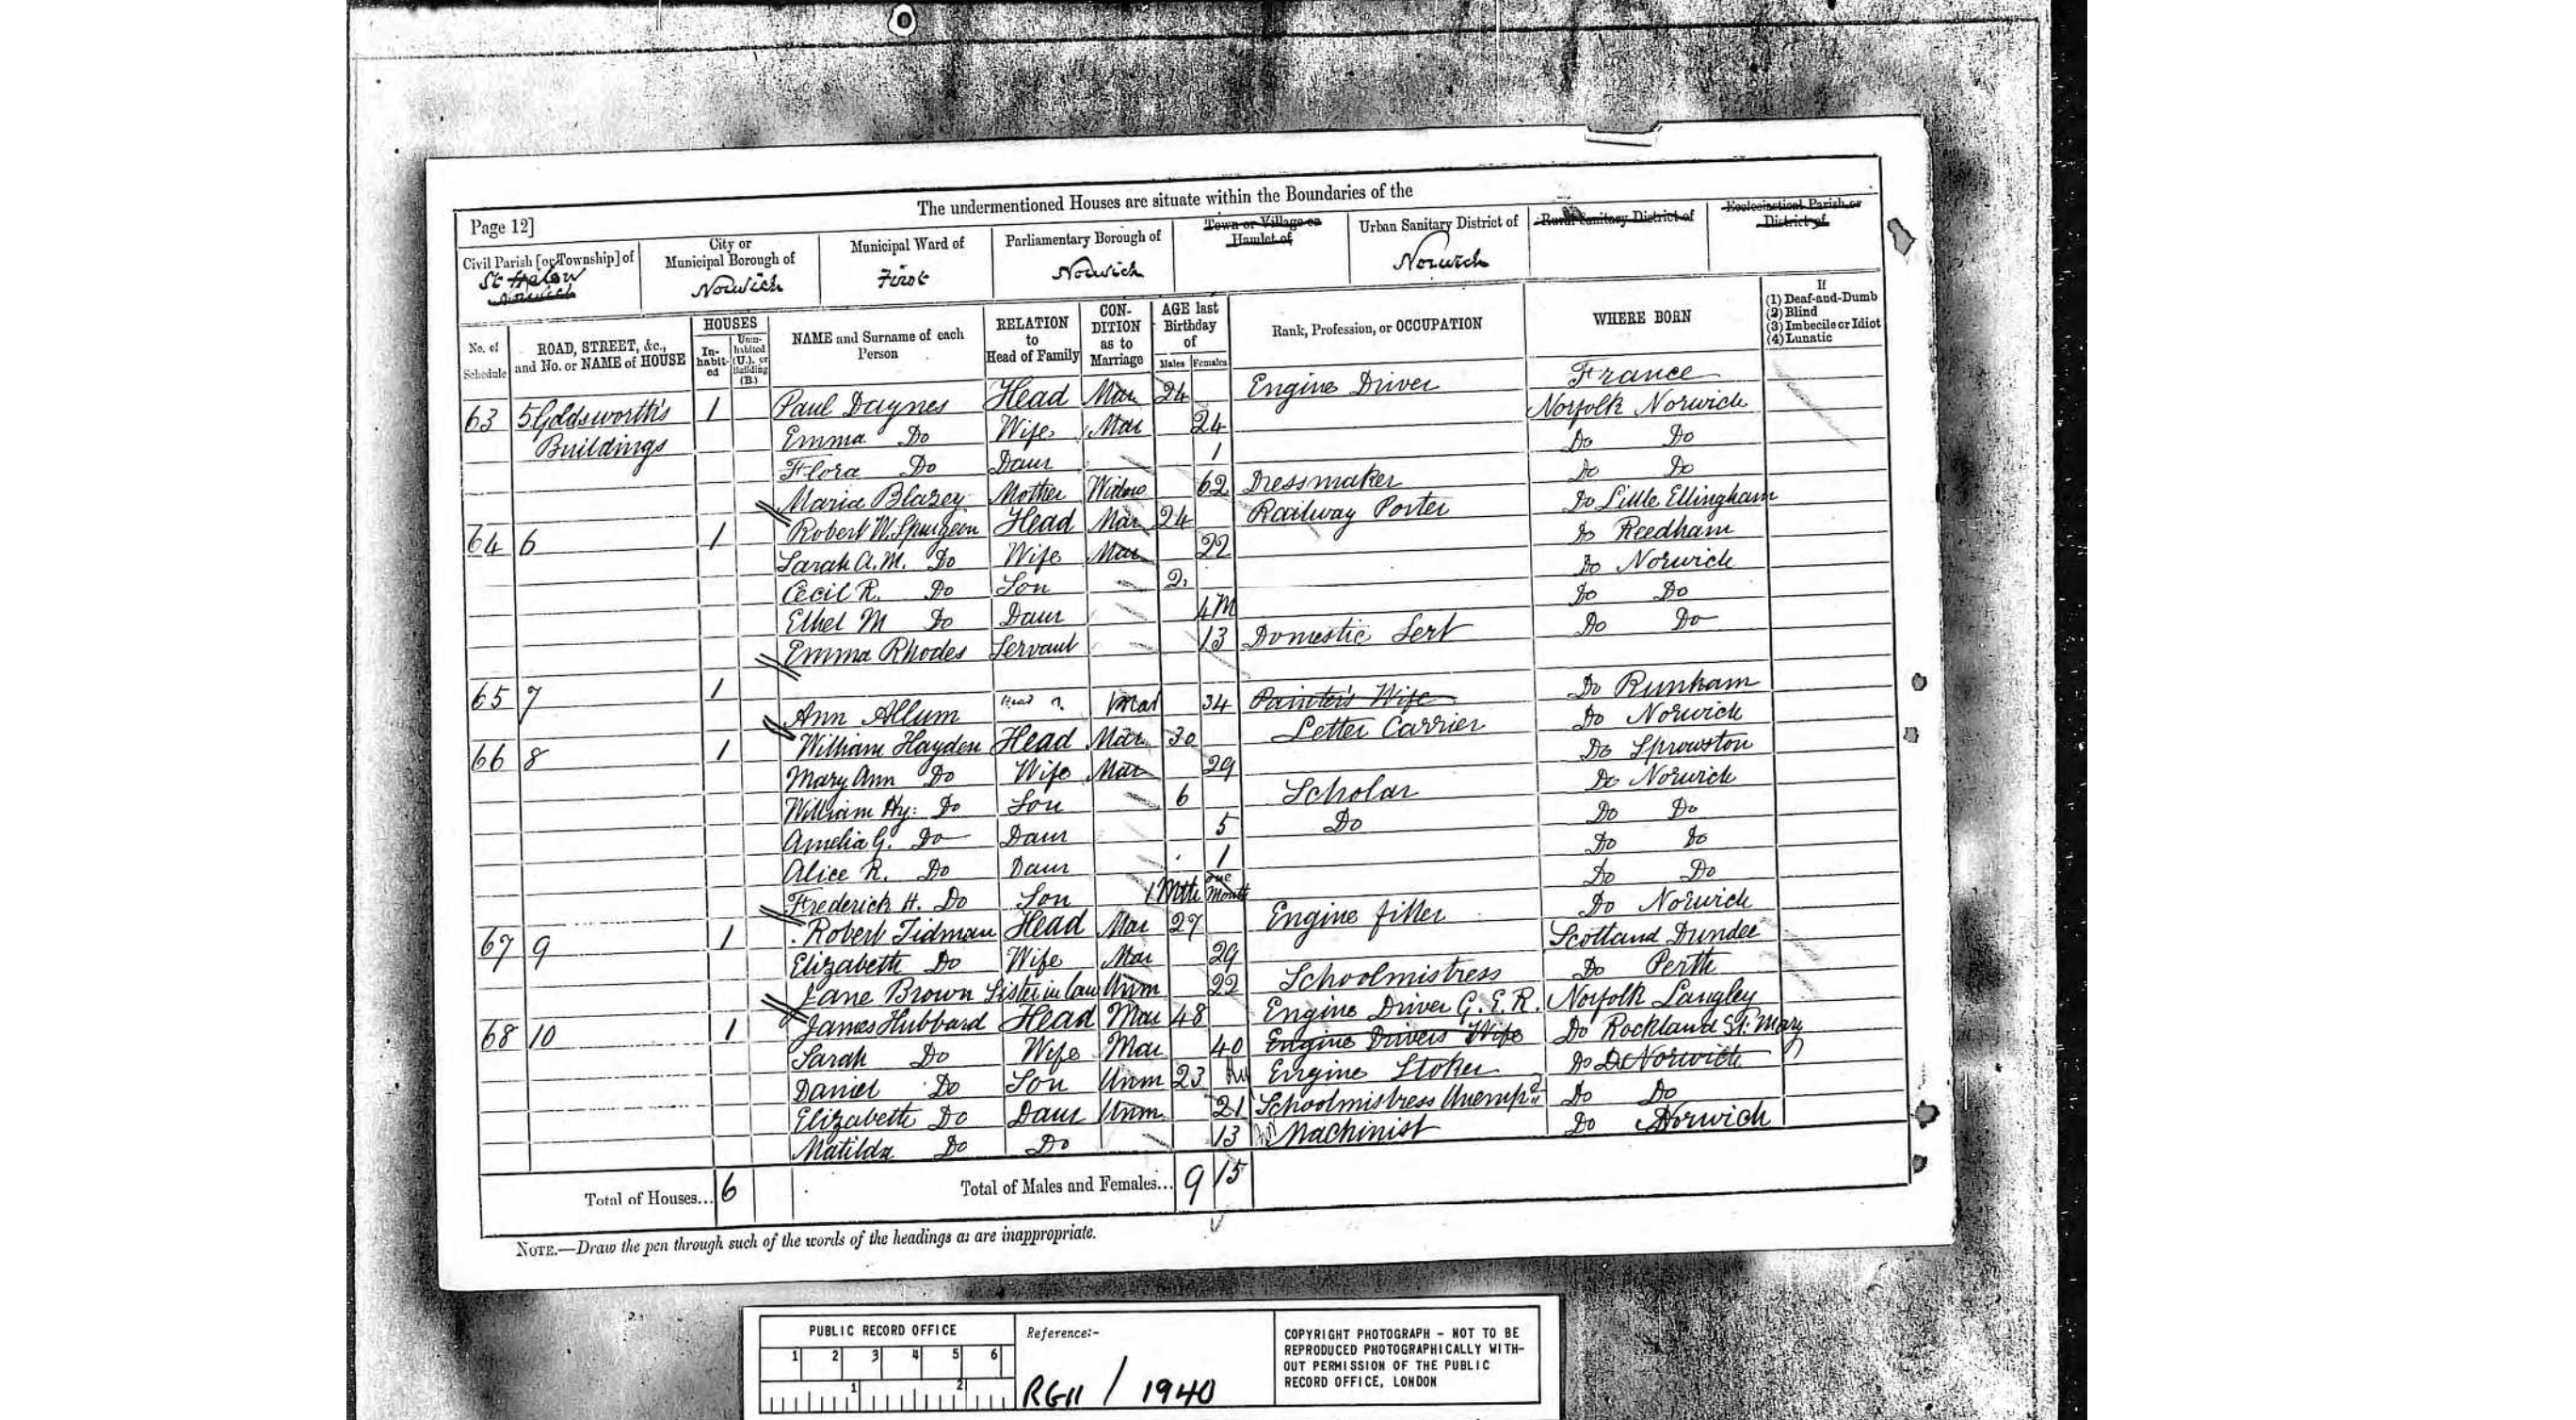 The undermentioned Houses are situate within the Boundaries of the
Page 12]
Civil Parish [or Township] of
St Helen
Norwich
City or
Municipal Borough of
Norwich
Municipal Ward of
First
Parliamentary Borough of
Norwich
Town or Village or
Hamlet of
Urban Sanitary District of
Norwich
Rural Sanitary District of
Ecclesiastical Parish or
District of
No. of
Schedule
ROAD, STREET, &c.,
and No. or NAME of HOUSE
HOUSES
In-
habit-
ed
Unin-
habited
(U.), or
Building
(B.)
NAME and Surname of each
Person
RELATION
to
Head of Family
CON-
DITION
as to
Marriage
AGE last
Birthday
of
Males Females
Rank, Profession, or OCCUPATION
WHERE BORN
If
(1) Deaf-and-Dumb
(2) Blind
(3) Imbecile or Idiot
(4) Lunatic
63 5 Goldsworth's 1 Paul Daynes Head Mar 24 Engine Driver France
Buildings Emma Do Wife Mar 24 Norfolk Norwich
Flora Do Daur 1 Do Do
Maria Blazey Mother Widow 62 Dressmaker Do Do
64 6 1 Robert W. Spurgeon Head Mar 24 Railway Porter Do Little Ellingham
Sarah A. M. Do Wife Mar 22 Do Reedham
Cecil R. Do Son 2 Do Norwich
Ethel M Do Daur 4 M Do Do
Emma Rhodes Servant 13 Domestic Servt Do Do
65 7 1
Ann Allum Head Mar 34 Painter's Wife Do Runham
66 8 1 William Hayden Head Mar 30 Letter Carrier Do Norwich
Mary Ann Do Wife Mar 29 Do Sprowston
William Hy: Do Son 6 Scholar Do Norwich
Amelia G. Do Daur 5 Do Do Do
Alice R. Do Daur 1 Do Do
Frederick H. Do Son 1 Mth One Month Do Do
67 9 1 Robert Tidman Head Mar 27 Engine fitter Do Norwich
Elizabeth Do Wife Mar 29 Scotland Dundee
Jane Brown Sister in law Unm 22 Schoolmistress Do Perth
68 10 1 James Hubbard Head Mar 48 Engine Driver G. E. R. Norfolk Langley
Sarah Do Wife Mar 40 Engine Drivers Wife Do Rockland St. Mary
Daniel Do Son Unm 23 Engine Stoker Do Do Norwich
Elizabeth Do Daur Unm 21 Schoolmistress Unempd Do Do
Matilda Do Do 13 Machinist Do Norwich
Total of Houses... 6
Total of Males and Females... 9 15
NOTE.—Draw the pen through such of the words of the headings as are inappropriate.
PUBLIC RECORD OFFICE
1 2 3 4 5 6
1 2
Reference:-
RG11 / 1940
COPYRIGHT PHOTOGRAPH - NOT TO BE
REPRODUCED PHOTOGRAPHICALLY WITH-
OUT PERMISSION OF THE PUBLIC
RECORD OFFICE, LONDON